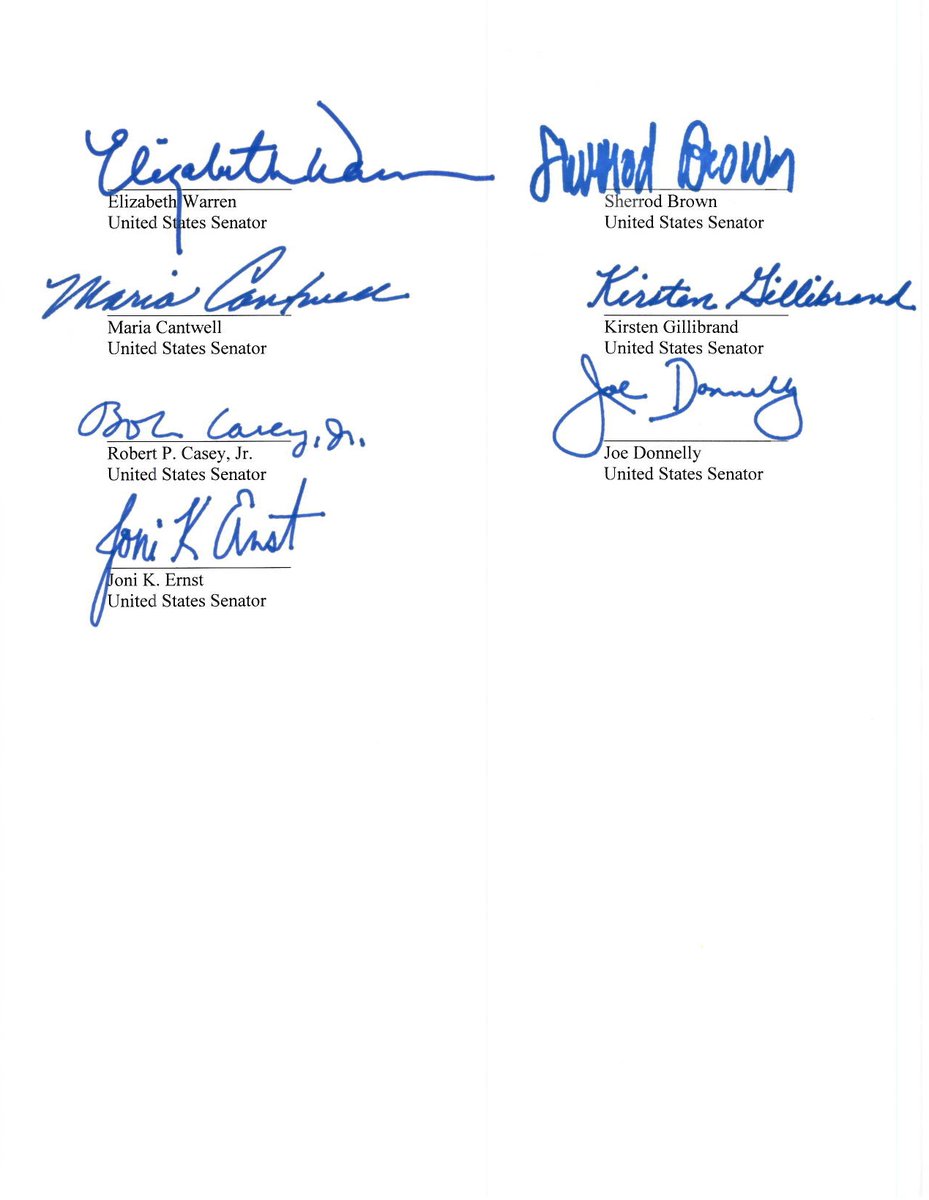 Elizabeth Warren
Elizabeth Warren
United States Senator
Sherrod Brown
Sherrod Brown
United States Senator
Maria Cantwell
Maria Cantwell
United States Senator
Kirsten Gillibrand
Kirsten Gillibrand
United States Senator
Bob Casey, Jr.
Robert P. Casey, Jr.
United States Senator
Joe Donnelly
Joe Donnelly
United States Senator
Joni K Ernst
Joni K. Ernst
United States Senator